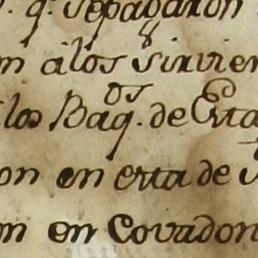 . q. se pagaron
n á los sirvien
los Baq.os de Esta
on en esta de
on en Covadon